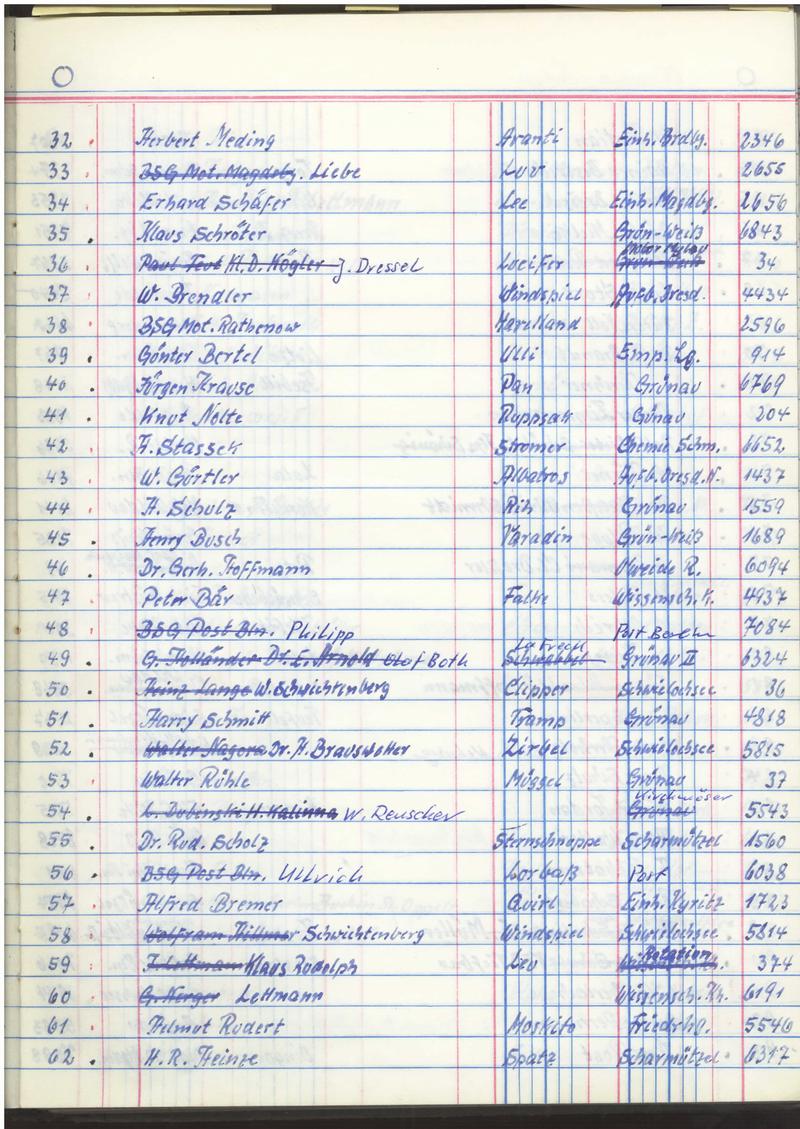 O
32 . Herbert Meding Avanti Einh. Brdbg. 2346
33 . BSG Mot. Magdebg. Liebe Luv 2655
34 . Erhard Schäfer Lee Einh. Magdbg. 2656
35 . Klaus Schröter Grün-Weiß 6843
36 . Paul Fest H.D. Kögler J. Dressel Lucifer Grün-Weiß Motor 34
37 . W. Brendler Windspiel Aufb. Dresd. 4434
38 . BSG Mot. Rathenow Havelland 2596
39 . Günter Bertel Ulli Emp. Lg. 914
40 . Jürgen Krause Pan Grünau 6769
41 . Knut Nolte Ruppsak Günau 204
42 . H. Stassek Stromer Chemie Schm. 6652
43 . W. Gürtler Albatros Aufb. Dresd. N. 1437
44 . H. Schulz Grünau 1559
45 . Henry Busch Varadin Grün-Weiß 1689
46 . Dr. Gerh. Hoffmann R. 6094
47 . Peter Bär Falke Wissensch. 4937
48 . BSG Post Bln. Philipp Post Berlin 7084
49 . G. Holländer Dr. E. Arnold Olaf Both Schwabbel La Frech Grünau II 6324
50 . Heinz Lange W. Schwichtenberg Clipper Schwielochsee 36
51 . Harry Schmitt Tramp Grünau 4818
52 . Walter Nagora Dr. H. Brauswetter Zirbel Schwielochsee 5815
53 . Walter Rühle Müggel Grünau 37
54 . L. Dubinski H. Kalinna W. Reuscher Grünau Kirchmöser 5543
55 . Dr. Rud. Scholz Sternschnuppe Scharmützel 1560
56 . BSG Post Bln. Ullrich Lorbaß Post 6038
57 . Alfred Bremer Quirl Einh. Kyritz 1723
58 . Wolfram Hillmer Schwichtenberg Windspiel Schwielochsee 5814
59 . H. Lettmann Klaus Rudolph Leo Rotation 374
60 . G. Nerger Lettmann Wissensch. 6191
61 . Helmut Rudert Moskito Friedrhg. 5546
62 . H.R. Heinze Spatz Scharmützel 6317